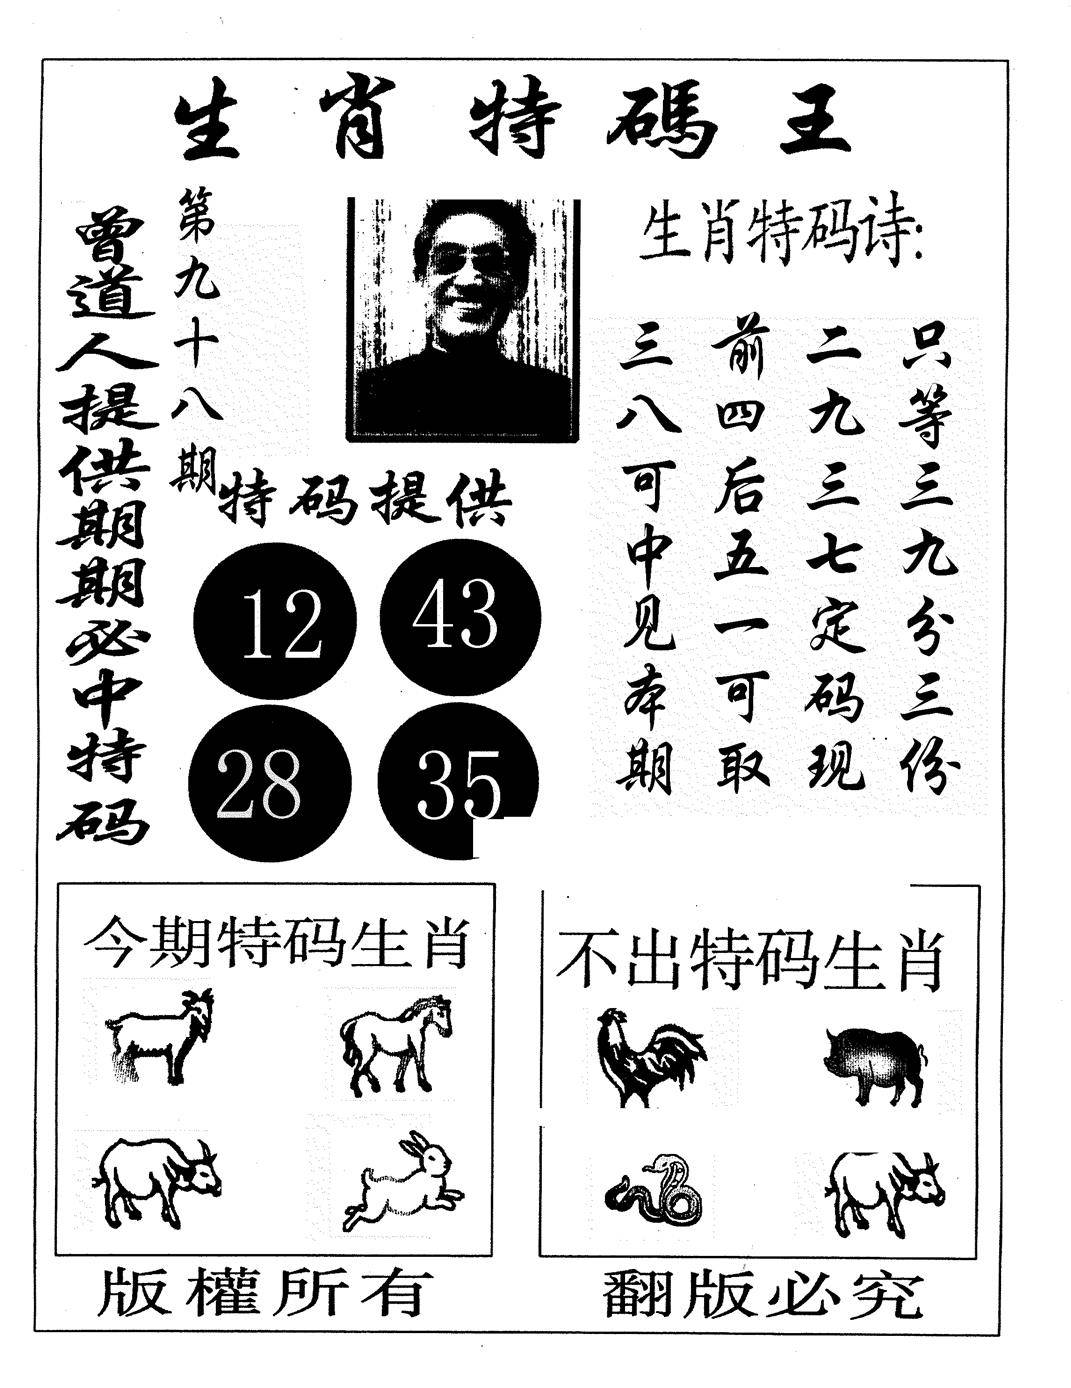 生肖特碼王
曾道人提供期期必中特码
第九十八期
生肖特码诗:
只等三九分三份
二九三七定码现
前四后五一可取
三八可中见本期
特码提供
12 43
28 35
今期特码生肖
不出特码生肖
版權所有
翻版必究